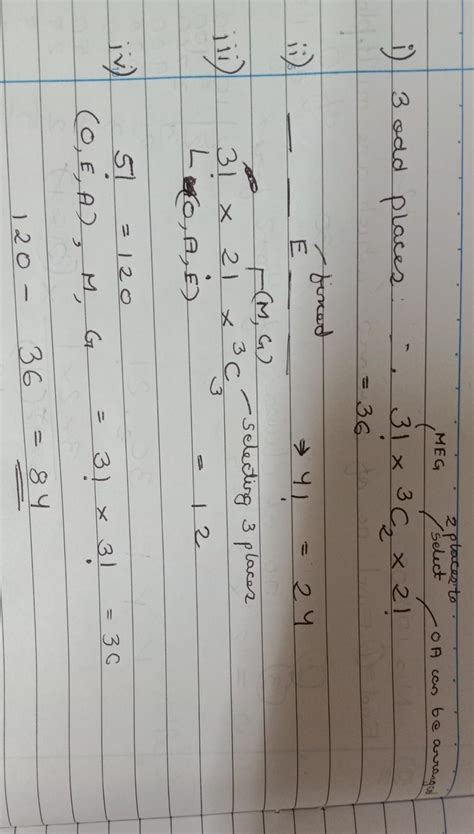 2 places to
MEG select OA can be arranged
i) 3 odd places : ", 3! × ³C₂ × 2!
= 36
fixed
ii) _ _ E _ _ → 4! = 24
(M, G) selecting 3 places
iii) 3! × 2! × ³C₃ = 12
(O, A, E)
iv) 5! = 120
(O, E, A), M, G = 3! × 3! = 36
120 - 36 = 84